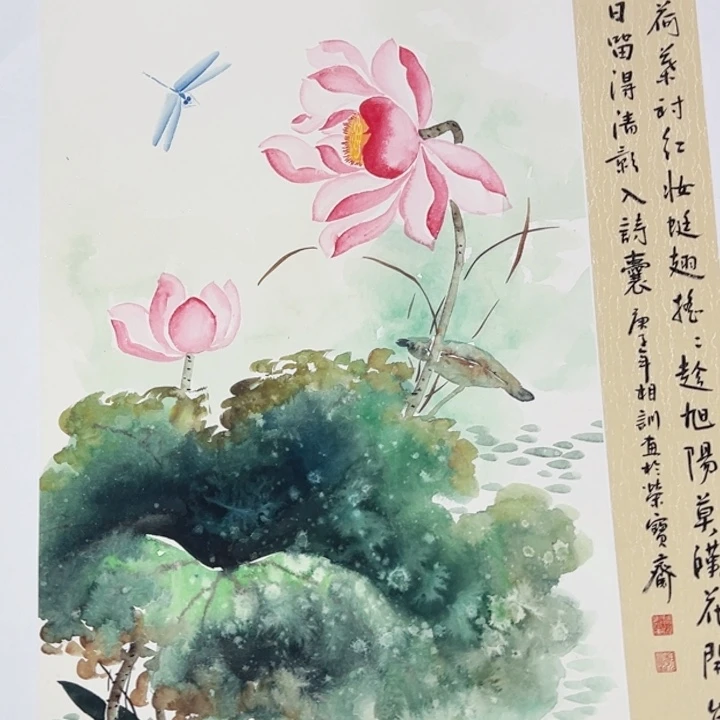 荷葉衬红妝蜓翅搖〻趁旭陽莫花開
日留得清影入詩囊 庚子年相訓画於榮寶齋